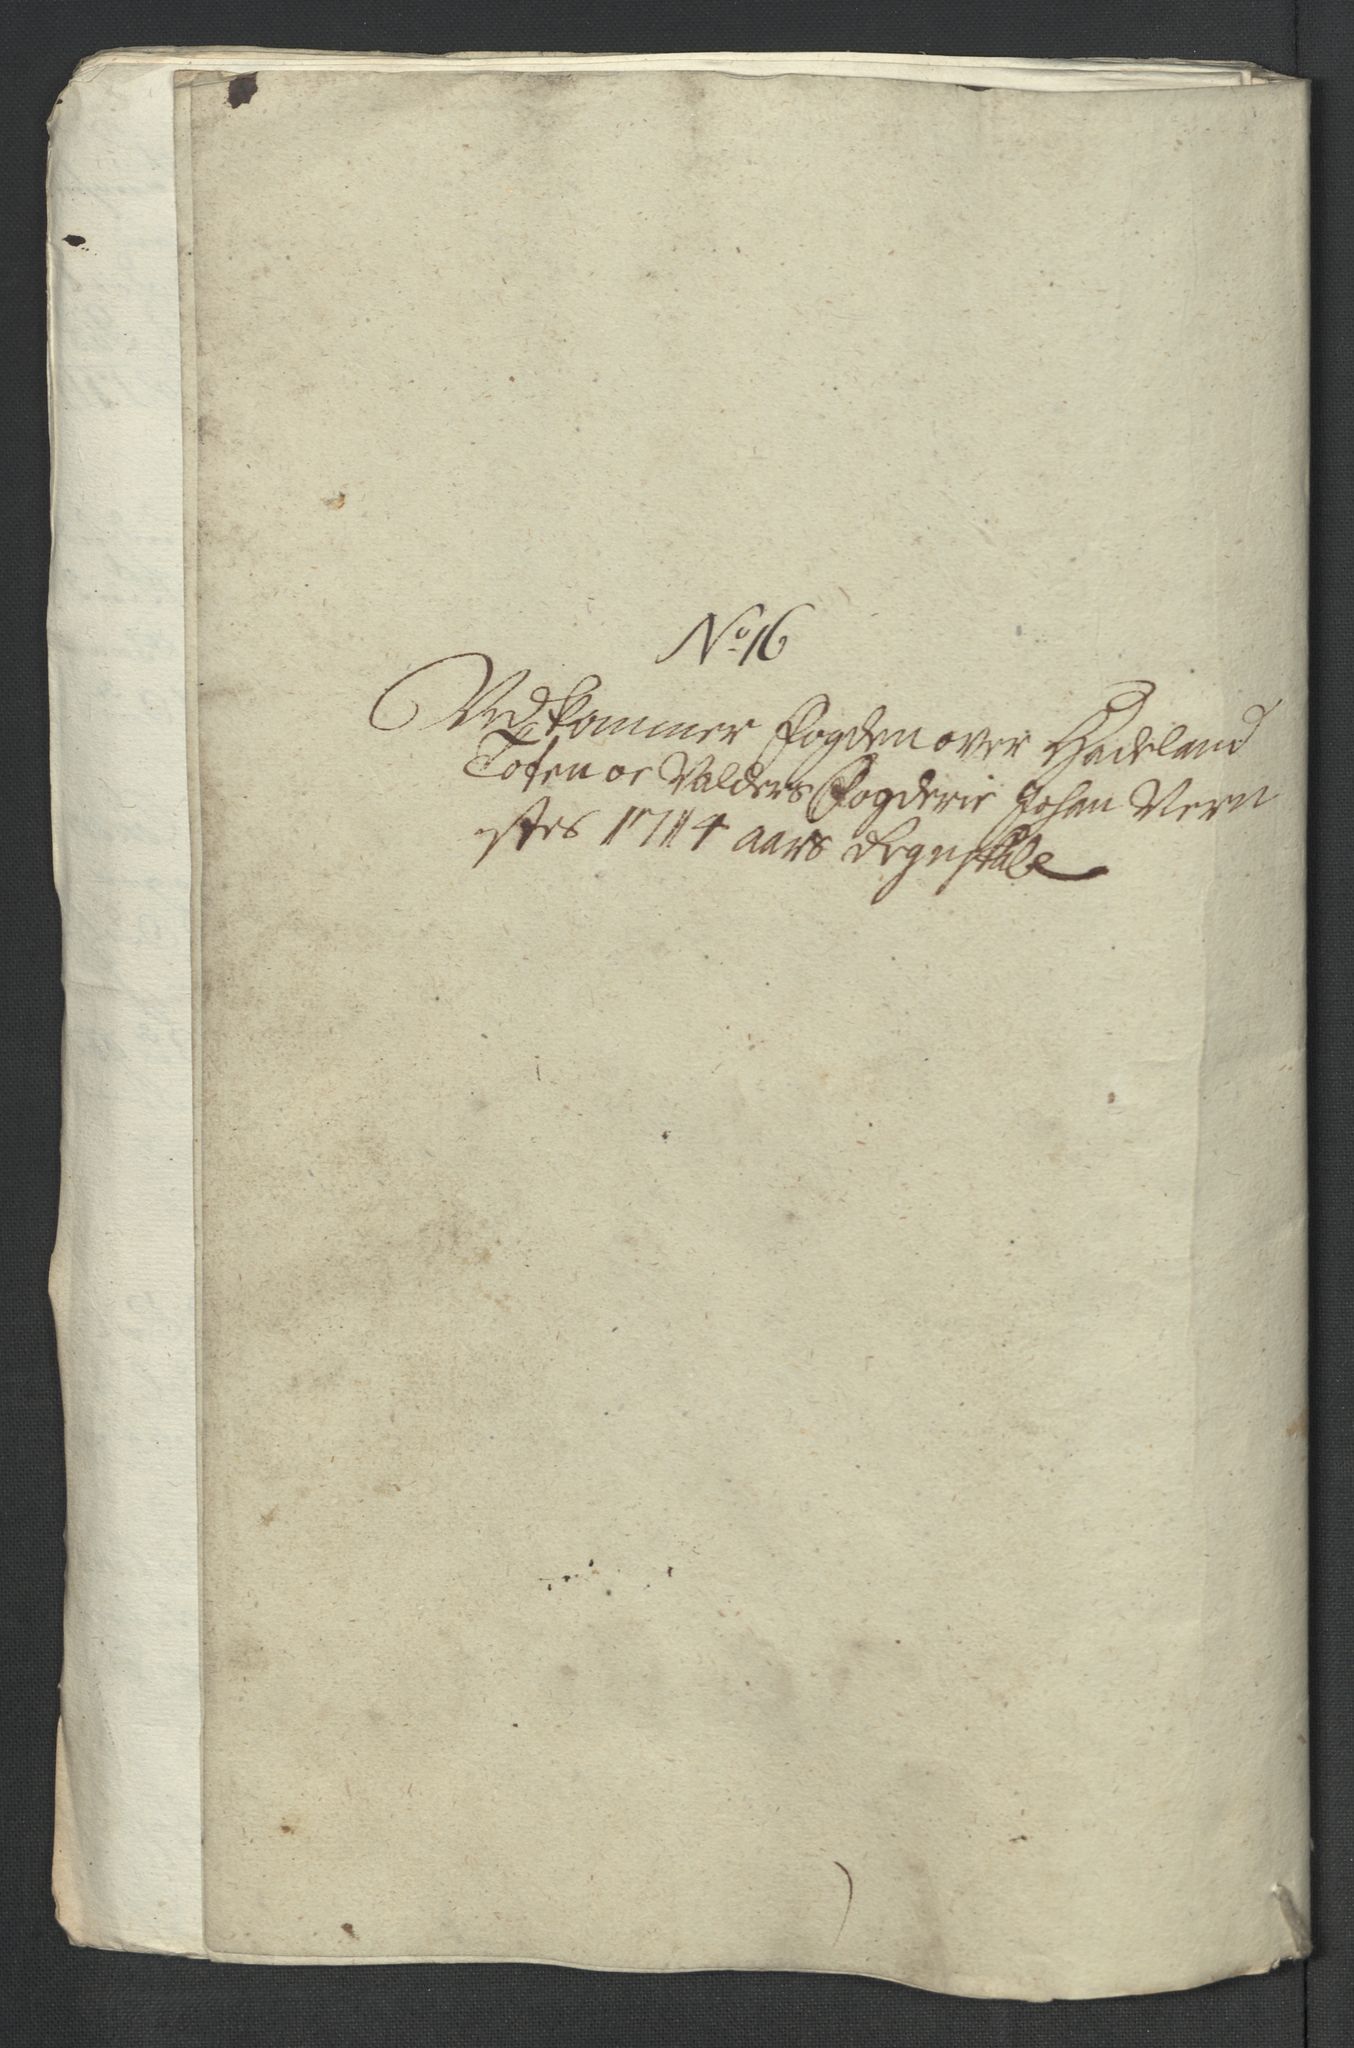 No. 16
Vedkommer Fogden over Hadeland
Toten oc Valders Fogderie Johan Vern
stes 1714 aars Regnskabe